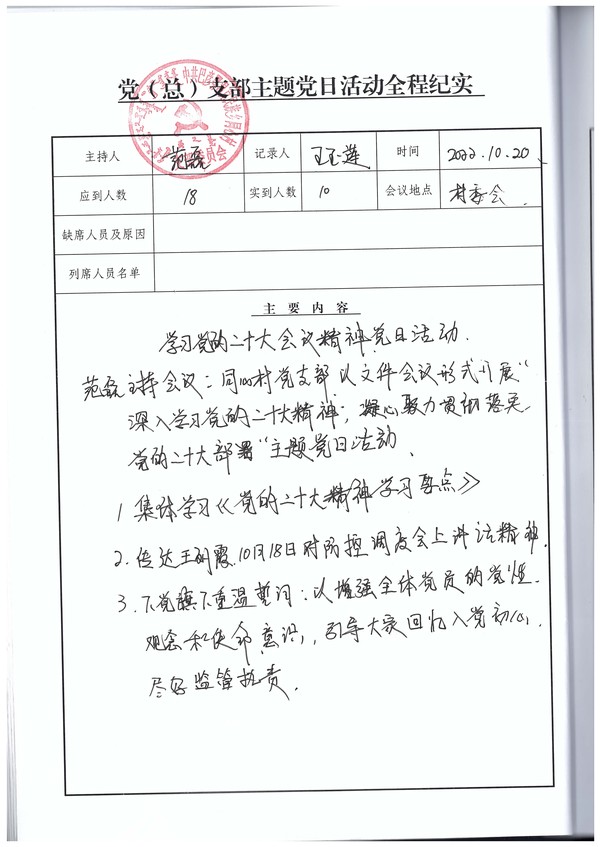 党（总）支部主题党日活动全程纪实
主持人 范磊 记录人 王玉莲 时间 2022.10.20
应到人数 18 实到人数 10 会议地点 村委会
缺席人员及原因
列席人员名单
主要内容
学习党的二十大会议精神党日活动.
范磊主持会议：同心村党支部以文件会议形式开展"
深入学习党的二十大精神；凝心聚力贯彻落实
党的二十大部署"主题党日活动.
1 集体学习《党的二十大精神学习要点》
2.传达 10月18日对防控调度会上讲话精神.
3. 党旗下重温誓词：以增强全体党员的党性.
观念和使命意识，引导大家回忆入党初心，
尽好监管 责.